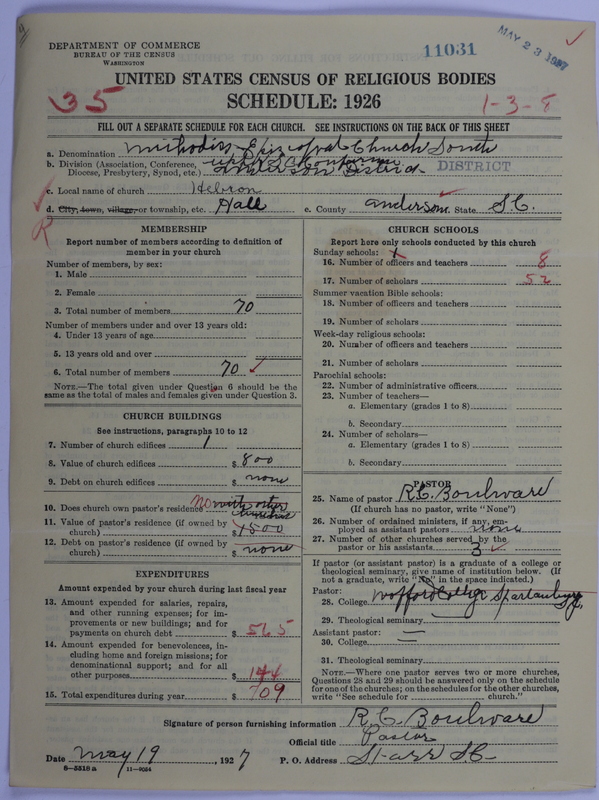 DEPARTMENT OF COMMERCE
BUREAU OF THE CENSUS
WASHINGTON
11031
MAY 23 1927
UNITED STATES CENSUS OF RELIGIOUS BODIES
SCHEDULE: 1926
35
1-3-8
FILL OUT A SEPARATE SCHEDULE FOR EACH CHURCH. SEE INSTRUCTIONS ON THE BACK OF THIS SHEET
a. Denomination Methodist Episcopal Church South
b. Division (Association, Conference, Diocese, Presbytery, Synod, etc.) Upper S C Conference
Anderson District DISTRICT
c. Local name of church Hebron
d. City, town, village, or township, etc. Hall e. County Anderson State S.C.
R
MEMBERSHIP
Report number of members according to definition of member in your church
Number of members, by sex:
1. Male
2. Female
3. Total number of members 70
Number of members under and over 13 years old:
4. Under 13 years of age
5. 13 years old and over
6. Total number of members 70
NOTE.—The total given under Question 6 should be the same as the total of males and females given under Question 3.
CHURCH BUILDINGS
See instructions, paragraphs 10 to 12
7. Number of church edifices 1
8. Value of church edifices $ 800
9. Debt on church edifices $ none
10. Does church own pastor's residence No with other churches
11. Value of pastor's residence (if owned by church) $ 1800
12. Debt on pastor's residence (if owned by church) $ none
EXPENDITURES
Amount expended by your church during last fiscal year
13. Amount expended for salaries, repairs, and other running expenses; for improvements or new buildings; and for payments on church debt $ 565
14. Amount expended for benevolences, including home and foreign missions; for denominational support; and for all other purposes $ 144
15. Total expenditures during year $ 709
CHURCH SCHOOLS
Report here only schools conducted by this church
Sunday schools: x
16. Number of officers and teachers 8
17. Number of scholars 52
Summer vacation Bible schools:
18. Number of officers and teachers
19. Number of scholars
Week-day religious schools:
20. Number of officers and teachers
21. Number of scholars
Parochial schools:
22. Number of administrative officers
23. Number of teachers—
a. Elementary (grades 1 to 8)
b. Secondary
24. Number of scholars—
a. Elementary (grades 1 to 8)
b. Secondary
PASTOR
25. Name of pastor R.C. Boulware
(If church has no pastor, write "None")
26. Number of ordained ministers, if any, employed as assistant pastors none
27. Number of other churches served by the pastor or his assistants 3
If pastor (or assistant pastor) is a graduate of a college or theological seminary, give name of institution below. (If not a graduate, write "No" in the space indicated.)
Pastor:
28. College Wofford College Spartanburg S.C.
29. Theological seminary
Assistant pastor: —
30. College —
31. Theological seminary
NOTE.—Where one pastor serves two or more churches, Questions 28 and 29 should be answered only on the schedule for one of the churches; on the schedules for the other churches, write "See schedule for church."
Signature of person furnishing information R.C. Boulware
Official title Pastor
Date May 19, 1927 P. O. Address Starr S.C.
6-5518 a 11-9034